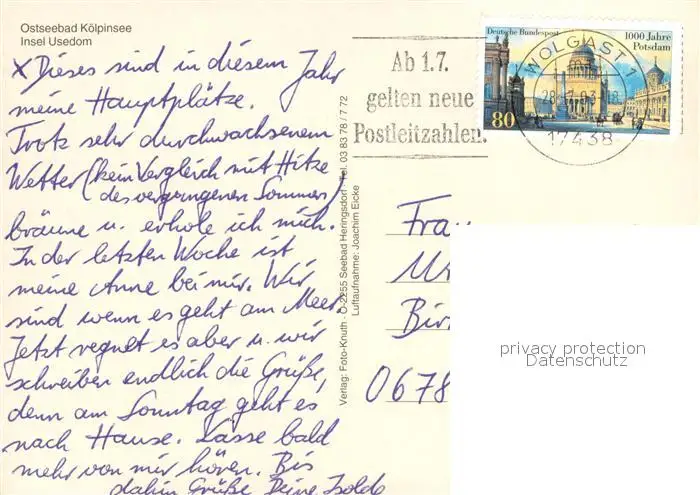 Ostseebad Kölpinsee
Insel Usedom
x Dieses sind in diesem Jahr
meine Hauptplätze.
Trotz sehr durchwachsenem
Wetter (kein Vergleich mit Hitze
des vergangenen Sommers)
bräune u. erhole ich mich.
In der letzten Woche ist
meine Anne bei mir. Wir
sind wenn es geht am Meer.
Jetzt regnet es aber u. wir
schreiben endlich die Grüße,
denn am Sonntag geht es
nach Hause. Lasse bald
mehr von mir hören. Bis
dahin Grüße Deine Isolde
Verlag: Foto-Knuth · O-2255 Seebad Heringsdorf · Tel. 03 83 78 / 7 72
Luftaufnahme: Joachim Eicke
Ab 1.7.
gelten neue
Postleitzahlen.
Deutsche Bundespost
1000 Jahre
Potsdam
80
WOLGAST 1
17438
Frau
Bir
0678
privacy protection
Datenschutz